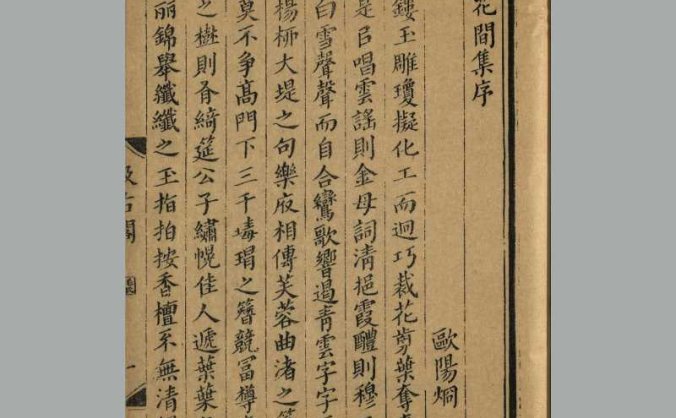 花間集序
歐陽烱
鏤玉雕瓊擬化工而迥巧裁花剪葉奪
是以唱雲謠則金母詞清挹霞醴則穆
白雪聲聲而自合鸞歌響遏青雲字字
楊栁大堤之句樂府相傳芙蓉曲渚之
莫不争髙門下三千瑇瑁之簪競冨樽
之樾則有綺筵公子繡幌佳人遞葉葉
麗錦舉纖纖之玉指拍按香檀不無清
汲古閣
一